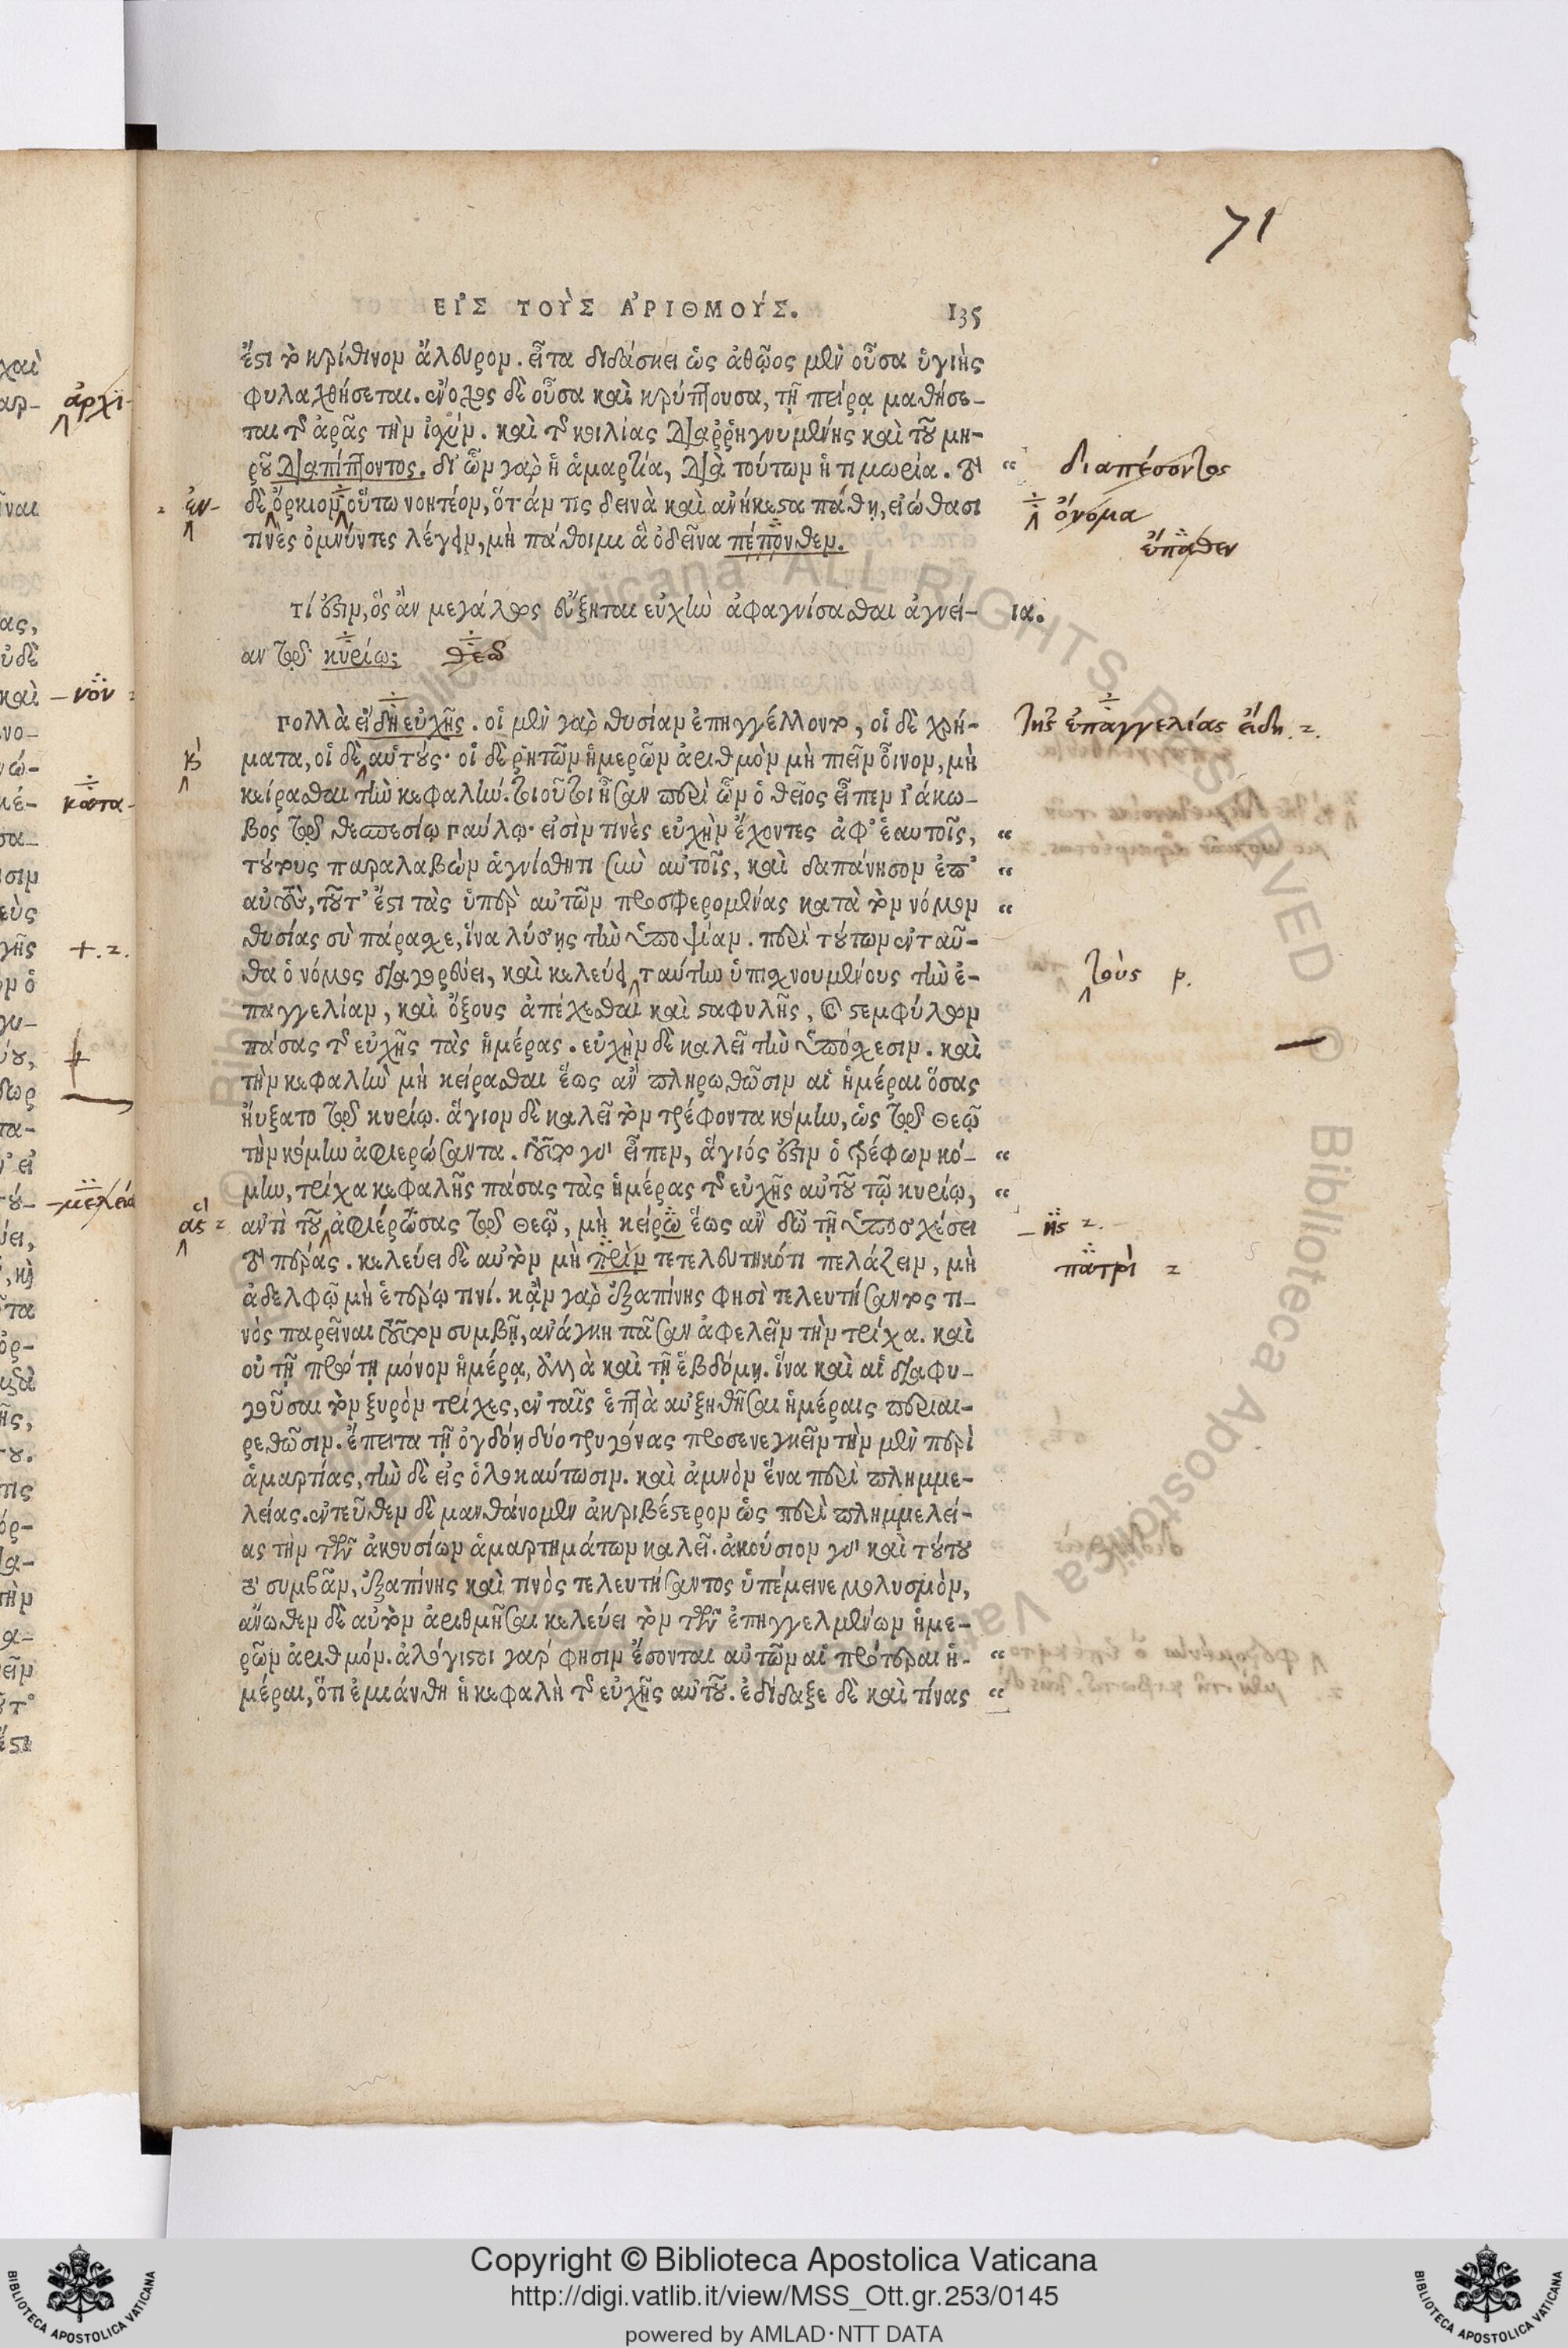 71
ΕΙ᾿Σ ΤΟΥ`Σ Α᾿ΡΙΘΜΟΥ´Σ. 135
ἔστι τὸ κρίθινον ἄλευρον. εἶτα διδάσκει ὡς ἀθῷος μὲν οὖσα ὑγιὴς
φυλαχθήσεται. ἔνοχος δὲ οὖσα καὶ κρύπτουσα, τῇ πείρᾳ μαθήσε-
ται τῆς ἀρᾶς τὴν ἰσχύν. καὶ τῆς κοιλίας διαῤῥηγνυμένης καὶ τοῦ μη-
ροῦ διαπίπτοντος. δι' ὧν γὰρ ἡ ἁμαρτία, διὰ τούτων ἡ τιμωρία. τὸ “ διαπέσοντος
ἐν- δὲ ὅρκιον οὕτω νοητέον, ὅτάν τις δεινὰ καὶ ἀνήκεστα πάθῃ, εἰώθασι ὄνομα
τινὲς ὀμνύντες λέγειν, μὴ πάθοιμι ἃ ὁδεῖνα πέπονθεν. ἔπαθεν
τί ἐστιν, ὃς ἂν μεγάλως εὔξηται εὐχὴν ἀφαγνίσασθαι ἁγνεί- ια.
αν τῷ κυρίῳ; θεῶ
Πολλὰ εἴδη εὐχῆς. οἱ μὲν γὰρ θυσίαν ἐπηγγέλλοντο, οἱ δὲ χρή- τῆς ἐπαγγελίας εἴδη. 2.
ματα, οἱ δὲ αὑτούς· οἱ δὲ ῥητῶν ἡμερῶν ἀριθμὸν μὴ πιεῖν οἶνον, μὴ
κείρασθαι τὴν κεφαλήν. τοιοῦτοι ἦσαν περὶ ὧν ὁ θεῖος εἶπεν Ἰάκω-
βος τῷ θεσπεσίῳ Παύλῳ· εἰσὶν τινὲς εὐχὴν ἔχοντες ἀφ' ἑαυτοῖς, “
τούτους παραλαβὼν ἁγνίσθητι σὺν αὐτοῖς, καὶ δαπάνησον ἐπ' “
αὐτούς, τοῦτ' ἔστι τὰς ὑπὲρ αὐτῶν προσφερομένας κατὰ τὸν νόμον “
θυσίας σὺ πάρασχε, ἵνα λύσῃς τὴν ὑποψίαν. περὶ τούτων ἐνταῦ-
θα ὁ νόμος διαγορεύει, καὶ κελεύει ταύτην ὑπισχνουμένους τὴν ἐ- τοὺς ρ.
παγγελίαν, καὶ ὄξους ἀπέχεσθαι καὶ σταφυλῆς, καὶ στεμφύλων
πάσας τῆς εὐχῆς τὰς ἡμέρας. εὐχὴν δὲ καλεῖ τὴν ὑπόσχεσιν. καὶ
τὴν κεφαλὴν μὴ κείρασθαι ἕως ἂν πληρωθῶσιν αἱ ἡμέραι ὅσας
ηὔξατο τῷ κυρίῳ. ἅγιον δὲ καλεῖ τὸν τρέφοντα κόμην, ὡς τῷ Θεῷ
τὴν κόμην ἀφιερώσαντα. τοῦτο γὰρ εἶπεν, ἅγιός ἐστιν ὁ τρέφων κό- “
μην, τρίχα κεφαλῆς πάσας τὰς ἡμέρας τῆς εὐχῆς αὐτοῦ τῷ κυρίῳ, “
ἀντὶ τοῦ ἀφιερώσας τῷ Θεῷ, μὴ κείρω ἕως ἂν δῶ τῇ ὑποσχέσει ης 2.
τὸ πέρας. κελεύει δὲ αὐτὸν μὴ πρὶν τετελευτηκότι πελάζειν, μὴ πατρὶ 2
ἀδελφῷ μὴ ἑτέρῳ τινί. κᾂν γὰρ ἐξαπίνης φησὶ τελευτήσαντος τι-
νὸς παρεῖναι τοῦτον συμβῇ, ἀνάγκη πᾶσαν ἀφελεῖν τὴν τρίχα. καὶ
οὐ τῇ πρώτῃ μόνον ἡμέρᾳ, ἀλλὰ καὶ τῇ ἑβδόμῃ. ἵνα καὶ αἱ διαφυ-
γοῦσαι τὸν ξυρὸν τρίχες, ἐν ταῖς ἑπτὰ αὐξηθῆσαι ἡμέραις περιαι-
ρεθῶσιν. ἔπειτα τῇ ὀγδόῃ δύο τρυγόνας προσενεγκεῖν τὴν μὲν περὶ
ἁμαρτίας, τὴν δὲ εἰς ὁλοκαύτωσιν. καὶ ἀμνὸν ἕνα περὶ πλημμε-
λείας. ἐντεῦθεν δὲ μανθάνομεν ἀκριβέστερον ὡς περὶ πλημμελεί-
ας τὴν τῶν ἀκουσίων ἁμαρτημάτων καλεῖ. ἀκούσιον γὰρ καὶ τούτου
τὸ συμβὰν, ἐξαπίνης καὶ τινὸς τελευτήσαντος ὑπέμεινε μολυσμὸν,
ἄνωθεν δὲ αὐτὸν ἀριθμῆσαι κελεύει τὸν τῶν ἐπηγγελμένων ἡμε-
ρῶν ἀριθμόν. ἀλόγιστοι γάρ φησιν ἔσονται αὐτῶν αἱ πρότεραι ἡ- “
μέραι, ὅτι ἐμιάνθη ἡ κεφαλὴ τῆς εὐχῆς αὐτοῦ. ἐδίδαξε δὲ καὶ τίνας “
Copyright © Biblioteca Apostolica Vaticana
http://digi.vatlib.it/view/MSS_Ott.gr.253/0145
powered by AMLAD·NTT DATA